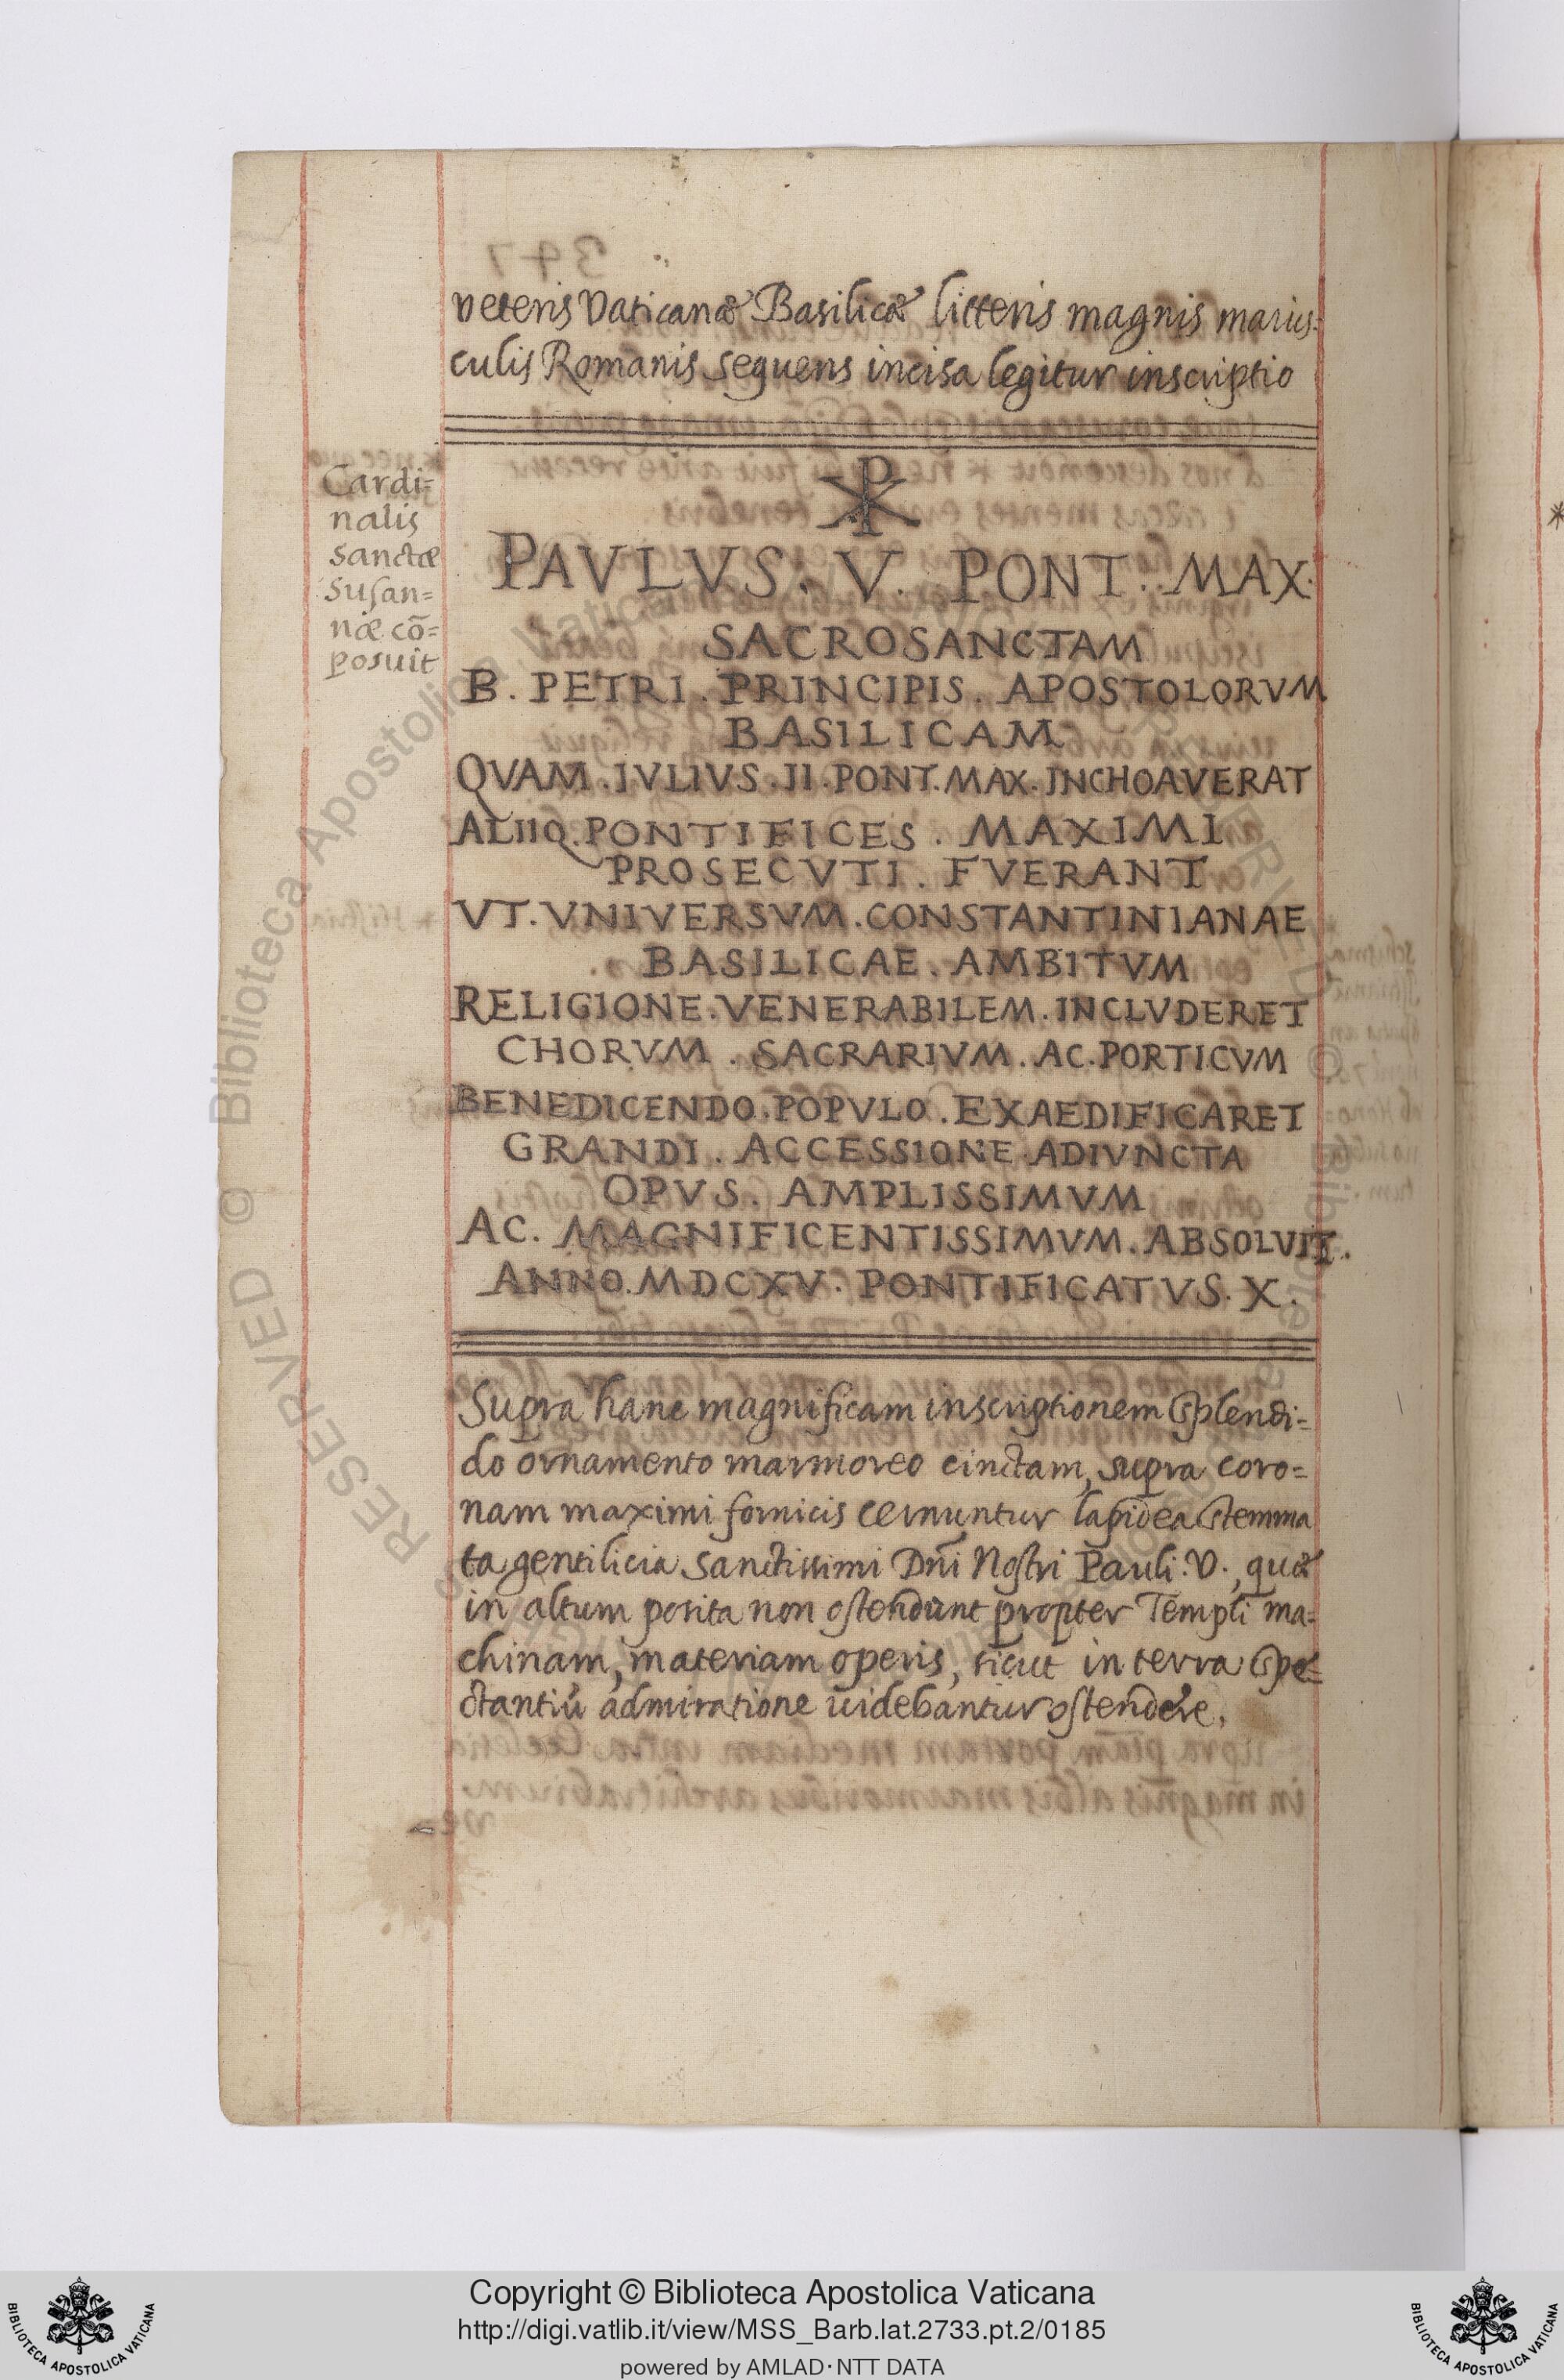 veteris Vaticanæ Basilicæ litteris magnis maius=
culis Romanis sequens incisa legitur inscriptio
☧
PAVLVS. V. PONT. MAX.
SACROSANCTAM
B. PETRI. PRINCIPIS. APOSTOLORVM
BASILICAM
QVAM. IVLIVS. II. PONT. MAX. INCHOAVERAT
ALIIQ. PONTIFICES. MAXIMI
PROSECVTI. FVERANT
VT. VNIVERSVM. CONSTANTINIANAE
BASILICAE. AMBITVM
RELIGIONE. VENERABILEM. INCLVDERET
CHORVM. SACRARIVM. AC. PORTICVM
BENEDICENDO. POPVLO. EXAEDIFICARET
GRANDI. ACCESSIONE. ADIVNCTA
OPVS. AMPLISSIMVM
AC. MAGNIFICENTISSIMVM. ABSOLVIT.
ANNO. MDCXV. PONTIFICATVS. X.
Cardi=
nalis
sanctæ
Susan=
næ cō=
posuit
Supra hanc magnificam inscriptionem splendi=
do ornamento marmoreo cinctam, supra coro=
nam maximi fornicis cernuntur lapidea stemma
ta gentilicia sanctissimi Dñi Nostri Pauli. V., quæ
in altum posita non ostendunt propter Templi ma=
chinam, materiam operis, sicut in terra spe=
ctantiū admiratione videbantur ostendere.
Copyright © Biblioteca Apostolica Vaticana
http://digi.vatlib.it/view/MSS_Barb.lat.2733.pt.2/0185
powered by AMLAD·NTT DATA
BIBLIOTECA APOSTOLICA VATICANA
BIBLIOTECA APOSTOLICA VATICANA